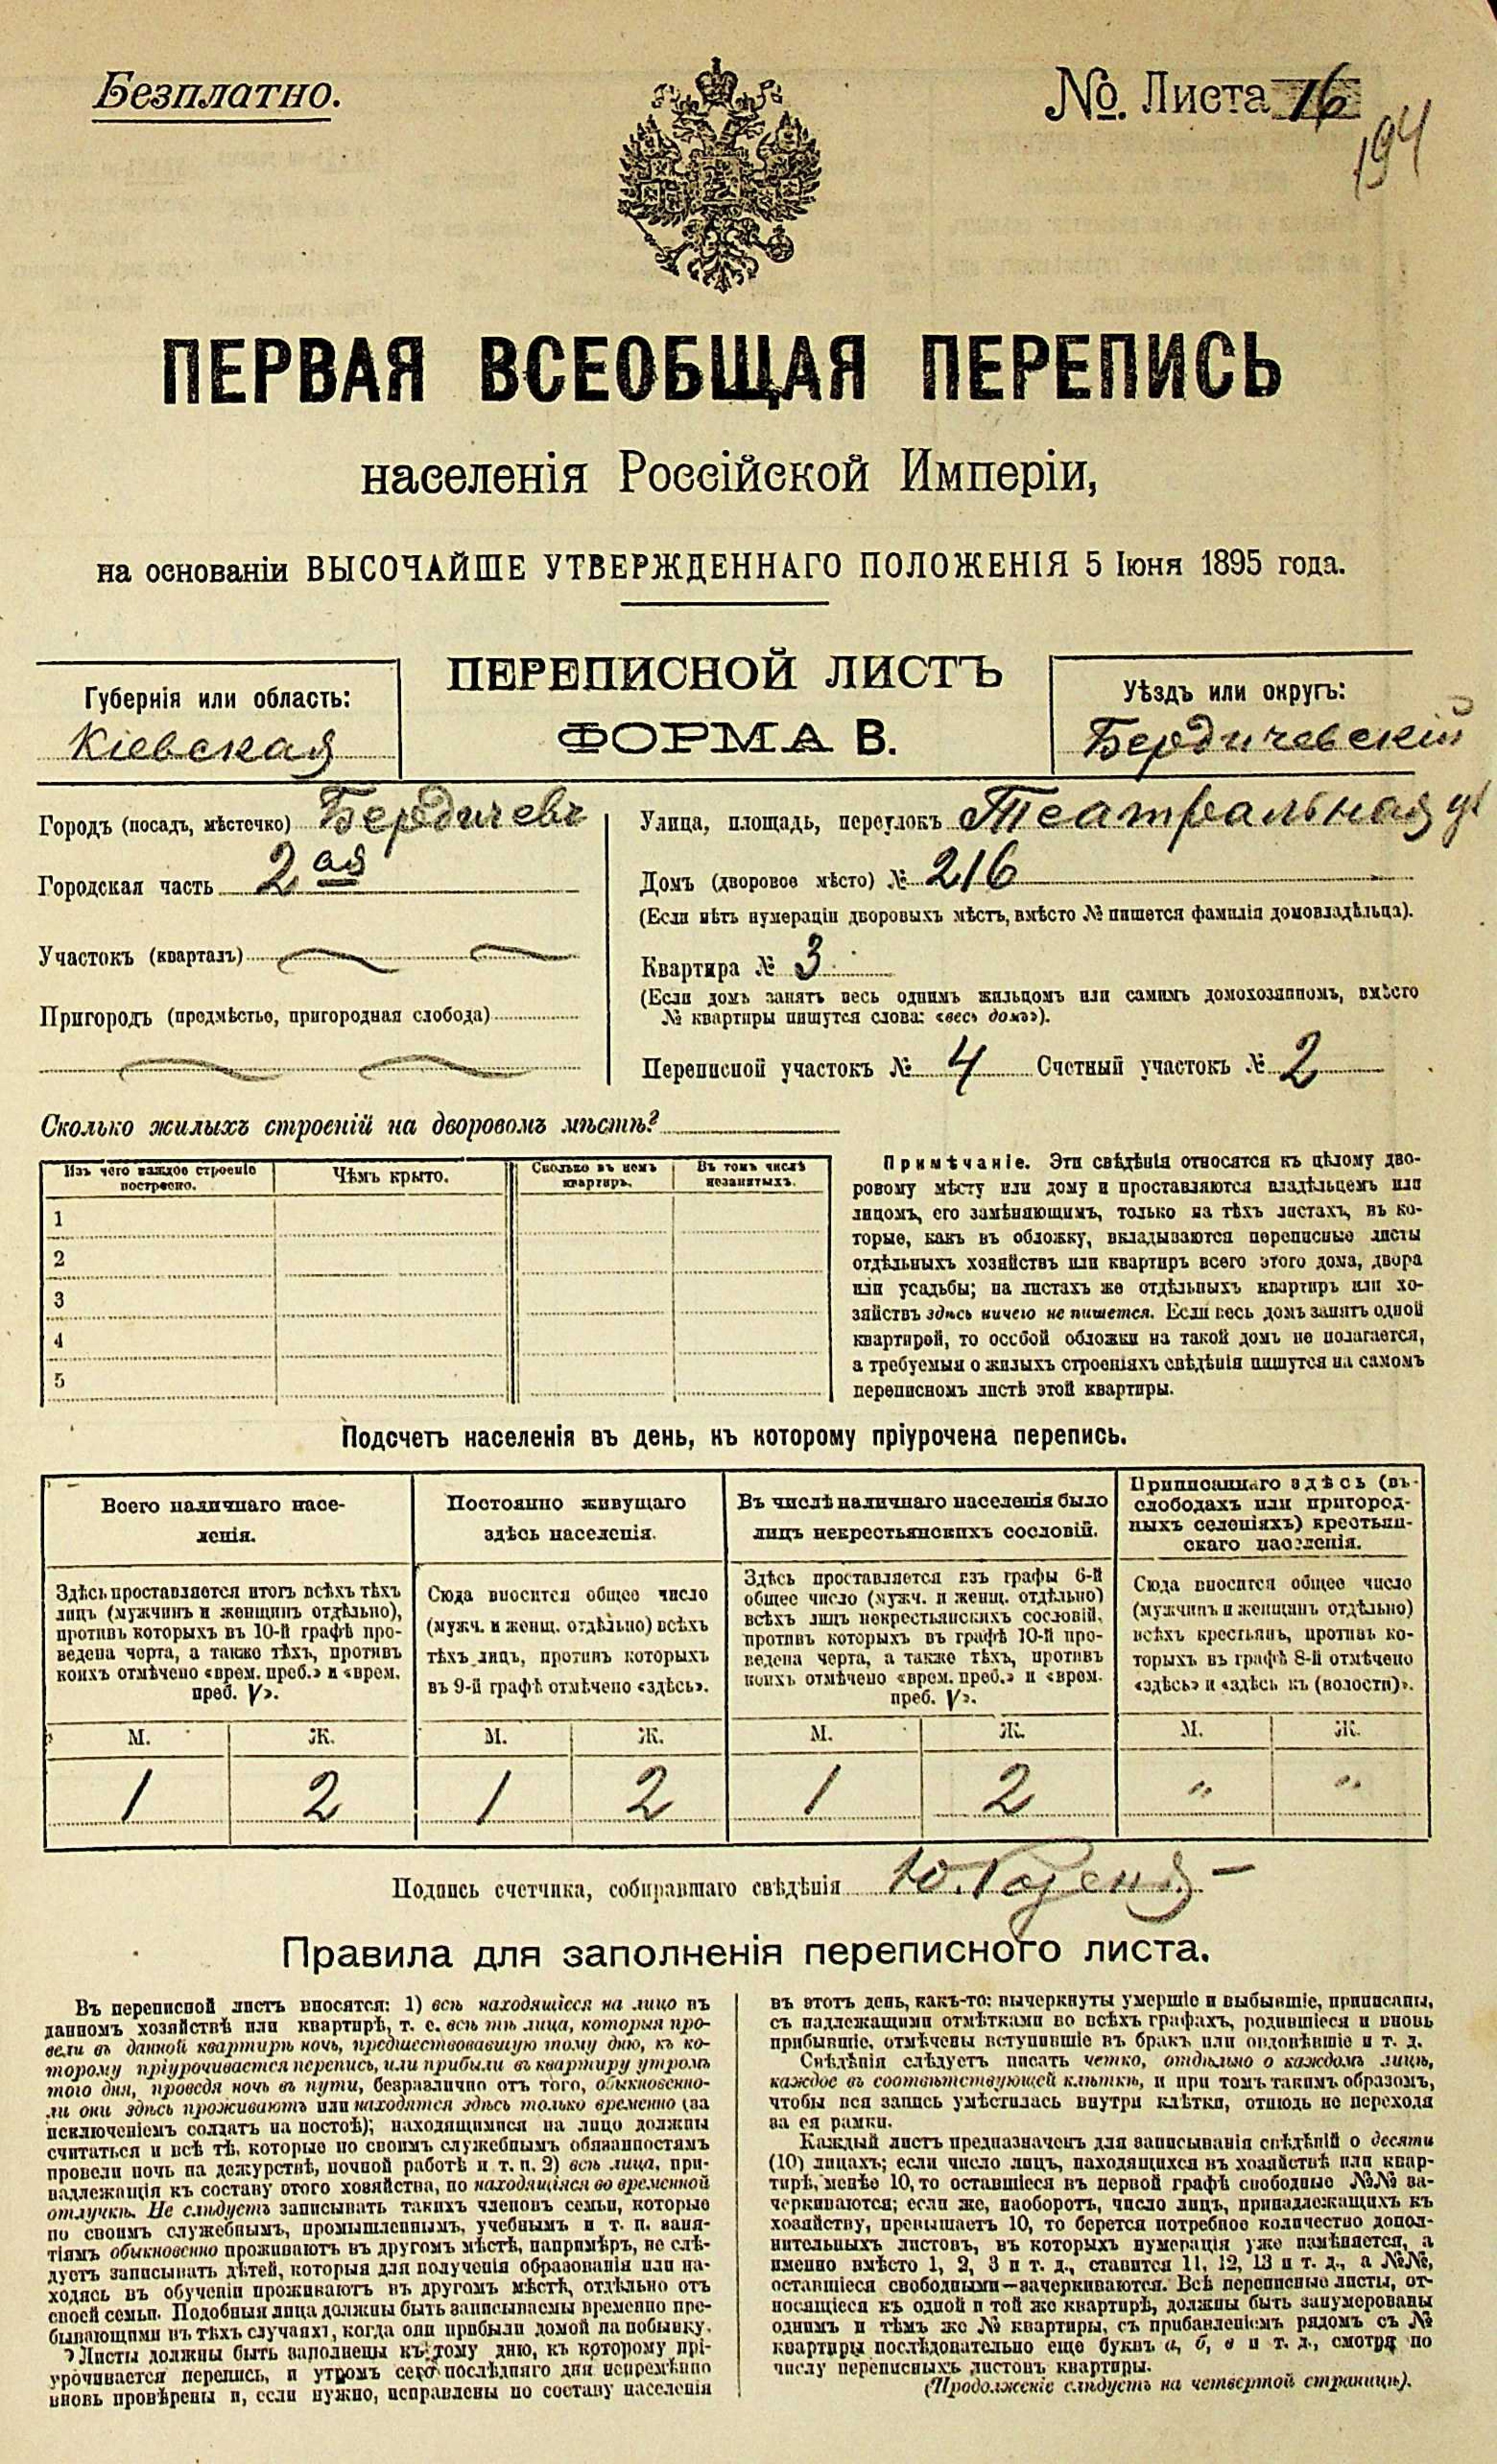 Безплатно.
№. Листа 16
194
ПЕРВАЯ ВСЕОБЩАЯ ПЕРЕПИСЬ
населенія Россійской Имперіи,
на основаніи ВЫСОЧАЙШЕ УТВЕРЖДЕННАГО ПОЛОЖЕНІЯ 5 Іюня 1895 года.
ПЕРЕПИСНОЙ ЛИСТЪ
ФОРМА В.
Губернія или область:
Кіевская
Уѣздъ или округъ:
Бердичевскій
Городъ (посадъ, мѣстечко) Бердичевъ
Городская часть 2ая
Участокъ (кварталъ)
Пригородъ (предмѣстье, пригородная слобода)
Улица, площадь, переулокъ Театральная ул
Домъ (дворовое мѣсто) № 216
(Если нѣтъ нумераціи дворовыхъ мѣстъ, вмѣсто № пишется фамилія домовладѣльца).
Квартира № 3
(Если домъ занятъ весь однимъ жильцомъ или самимъ домохозяиномъ, вмѣсто
№ квартиры пишутся слова: «весь домъ»).
Переписной участокъ № 4 Счетный участокъ № 2
Сколько жилыхъ строеній на дворовомъ мѣстѣ?
Изъ чего каждое строеніе
построено.
Чѣмъ крыто.
Сколько въ немъ
квартиръ.
Въ томъ числѣ
незанятыхъ.
1
2
3
4
5
Примѣчаніе. Эти свѣдѣнія относятся къ цѣлому дво-
ровому мѣсту или дому и проставляются владѣльцемъ или
лицомъ, его замѣняющимъ, только на тѣхъ листахъ, въ ко-
торые, какъ въ обложку, вкладываются переписные листы
отдѣльныхъ хозяйствъ или квартиръ всего этого дома, двора
или усадьбы; на листахъ же отдѣльныхъ квартиръ или хо-
зяйствъ здѣсь ничего не пишется. Если весь домъ занятъ одной
квартирой, то особой обложки на такой домъ не полагается,
а требуемыя о жилыхъ строеніяхъ свѣдѣнія пишутся на самомъ
переписномъ листѣ этой квартиры.
Подсчетъ населенія въ день, къ которому пріурочена перепись.
Всего наличнаго насе-
ленія.
Здѣсь проставляется итогъ всѣхъ тѣхъ
лицъ (мужчинъ и женщинъ отдѣльно),
противъ которыхъ въ 10-й графѣ про-
ведена черта, а также тѣхъ, противъ
коихъ отмѣчено «врем. преб.» и «врем.
преб. V».
Постоянно живущаго
здѣсь населенія.
Сюда вносится общее число
(мужч. и женщ. отдѣльно) всѣхъ
тѣхъ лицъ, противъ которыхъ
въ 9-й графѣ отмѣчено «здѣсь».
Въ числѣ наличнаго населенія было
лицъ некрестьянскихъ сословій.
Здѣсь проставляется изъ графы 6-й
общее число (мужч. и женщ. отдѣльно)
всѣхъ лицъ некрестьянскихъ сословій,
противъ которыхъ въ графѣ 10-й про-
ведена черта, а также тѣхъ, противъ
коихъ отмѣчено «врем. преб.» и «врем.
преб. V».
Приписаннаго здѣсь (въ
слободахъ или пригород-
ныхъ селеніяхъ) крестьян-
скаго населенія.
Сюда вносится общее число
(мужчинъ и женщинъ отдѣльно)
всѣхъ крестьянъ, противъ ко-
торыхъ въ графѣ 8-й отмѣчено
«здѣсь» и «здѣсь къ (волости)».
М. Ж. М. Ж. М. Ж. М. Ж.
1 2 1 2 1 2 " "
Подпись счетчика, собиравшаго свѣдѣнія Ю.
Правила для заполненія переписного листа.
Въ переписной листъ вносятся: 1) всѣ находящіеся на лицо въ
данномъ хозяйствѣ или квартирѣ, т. е. всѣ тѣ лица, которыя про-
вели въ данной квартирѣ ночь, предшествовавшую тому дню, къ ко-
торому пріурочивается перепись, или прибыли въ квартиру утромъ
того дня, проведя ночь въ пути, безразлично отъ того, обыкновенно-
ли они здѣсь проживаютъ или находятся здѣсь только временно (за
исключеніемъ солдатъ на постоѣ); находящимися на лицо должны
считаться и всѣ тѣ, которые по своимъ служебнымъ обязанностямъ
провели ночь на дежурствѣ, ночной работѣ и т. п. 2) всѣ лица, при-
надлежащія къ составу этого хозяйства, но находящіяся во временной
отлучкѣ. Не слѣдуетъ записывать такихъ членовъ семьи, которые
по своимъ служебнымъ, промышленнымъ, учебнымъ и т. п. заня-
тіямъ обыкновенно проживаютъ въ другомъ мѣстѣ, напримѣръ, не слѣ-
дуетъ записывать дѣтей, которыя для полученія образованія или на-
ходясь въ обученіи проживаютъ въ другомъ мѣстѣ, отдѣльно отъ
своей семьи. Подобныя лица должны быть записываемы временно пре-
бывающими въ тѣхъ случаяхъ, когда они прибыли домой на побывку.
Листы должны быть заполнены къ тому дню, къ которому прі-
урочивается перепись, и утромъ сего послѣдняго дня непремѣнно
вновь провѣрены и, если нужно, исправлены по составу населенія
въ этотъ день, какъ-то: вычеркнуты умершіе и выбывшіе, приписаны,
съ надлежащими отмѣтками во всѣхъ графахъ, родившіеся и вновь
прибывшіе, отмѣчены вступившіе въ бракъ или овдовѣвшіе и т. д.
Свѣдѣнія слѣдуетъ писать четко, отдѣльно о каждомъ лицѣ,
каждое въ соотвѣтствующей клѣткѣ, и при томъ такимъ образомъ,
чтобы вся запись умѣстилась внутри клѣтки, отнюдь не переходя
за ея рамки.
Каждый листъ предназначенъ для записыванія свѣдѣній о десяти
(10) лицахъ; если число лицъ, находящихся въ хозяйствѣ или квар-
тирѣ, менѣе 10, то оставшіеся въ первой графѣ свободные №№ за-
черкиваются; если же, наоборотъ, число лицъ, принадлежащихъ къ
хозяйству, превышаетъ 10, то берется потребное количество допол-
нительныхъ листовъ, въ которыхъ нумерація уже измѣняется, а
именно вмѣсто 1, 2, 3 и т. д., ставится 11, 12, 13 и т. д., а №№,
оставшіеся свободными—зачеркиваются. Всѣ переписные листы, от-
носящіеся къ одной и той же квартирѣ, должны быть занумерованы
однимъ и тѣмъ же № квартиры, съ прибавленіемъ рядомъ съ №
квартиры послѣдовательно еще буквъ а, б, в и т. д., смотря по
числу переписныхъ листовъ квартиры.
(Продолженіе слѣдуетъ на четвертой страницѣ).